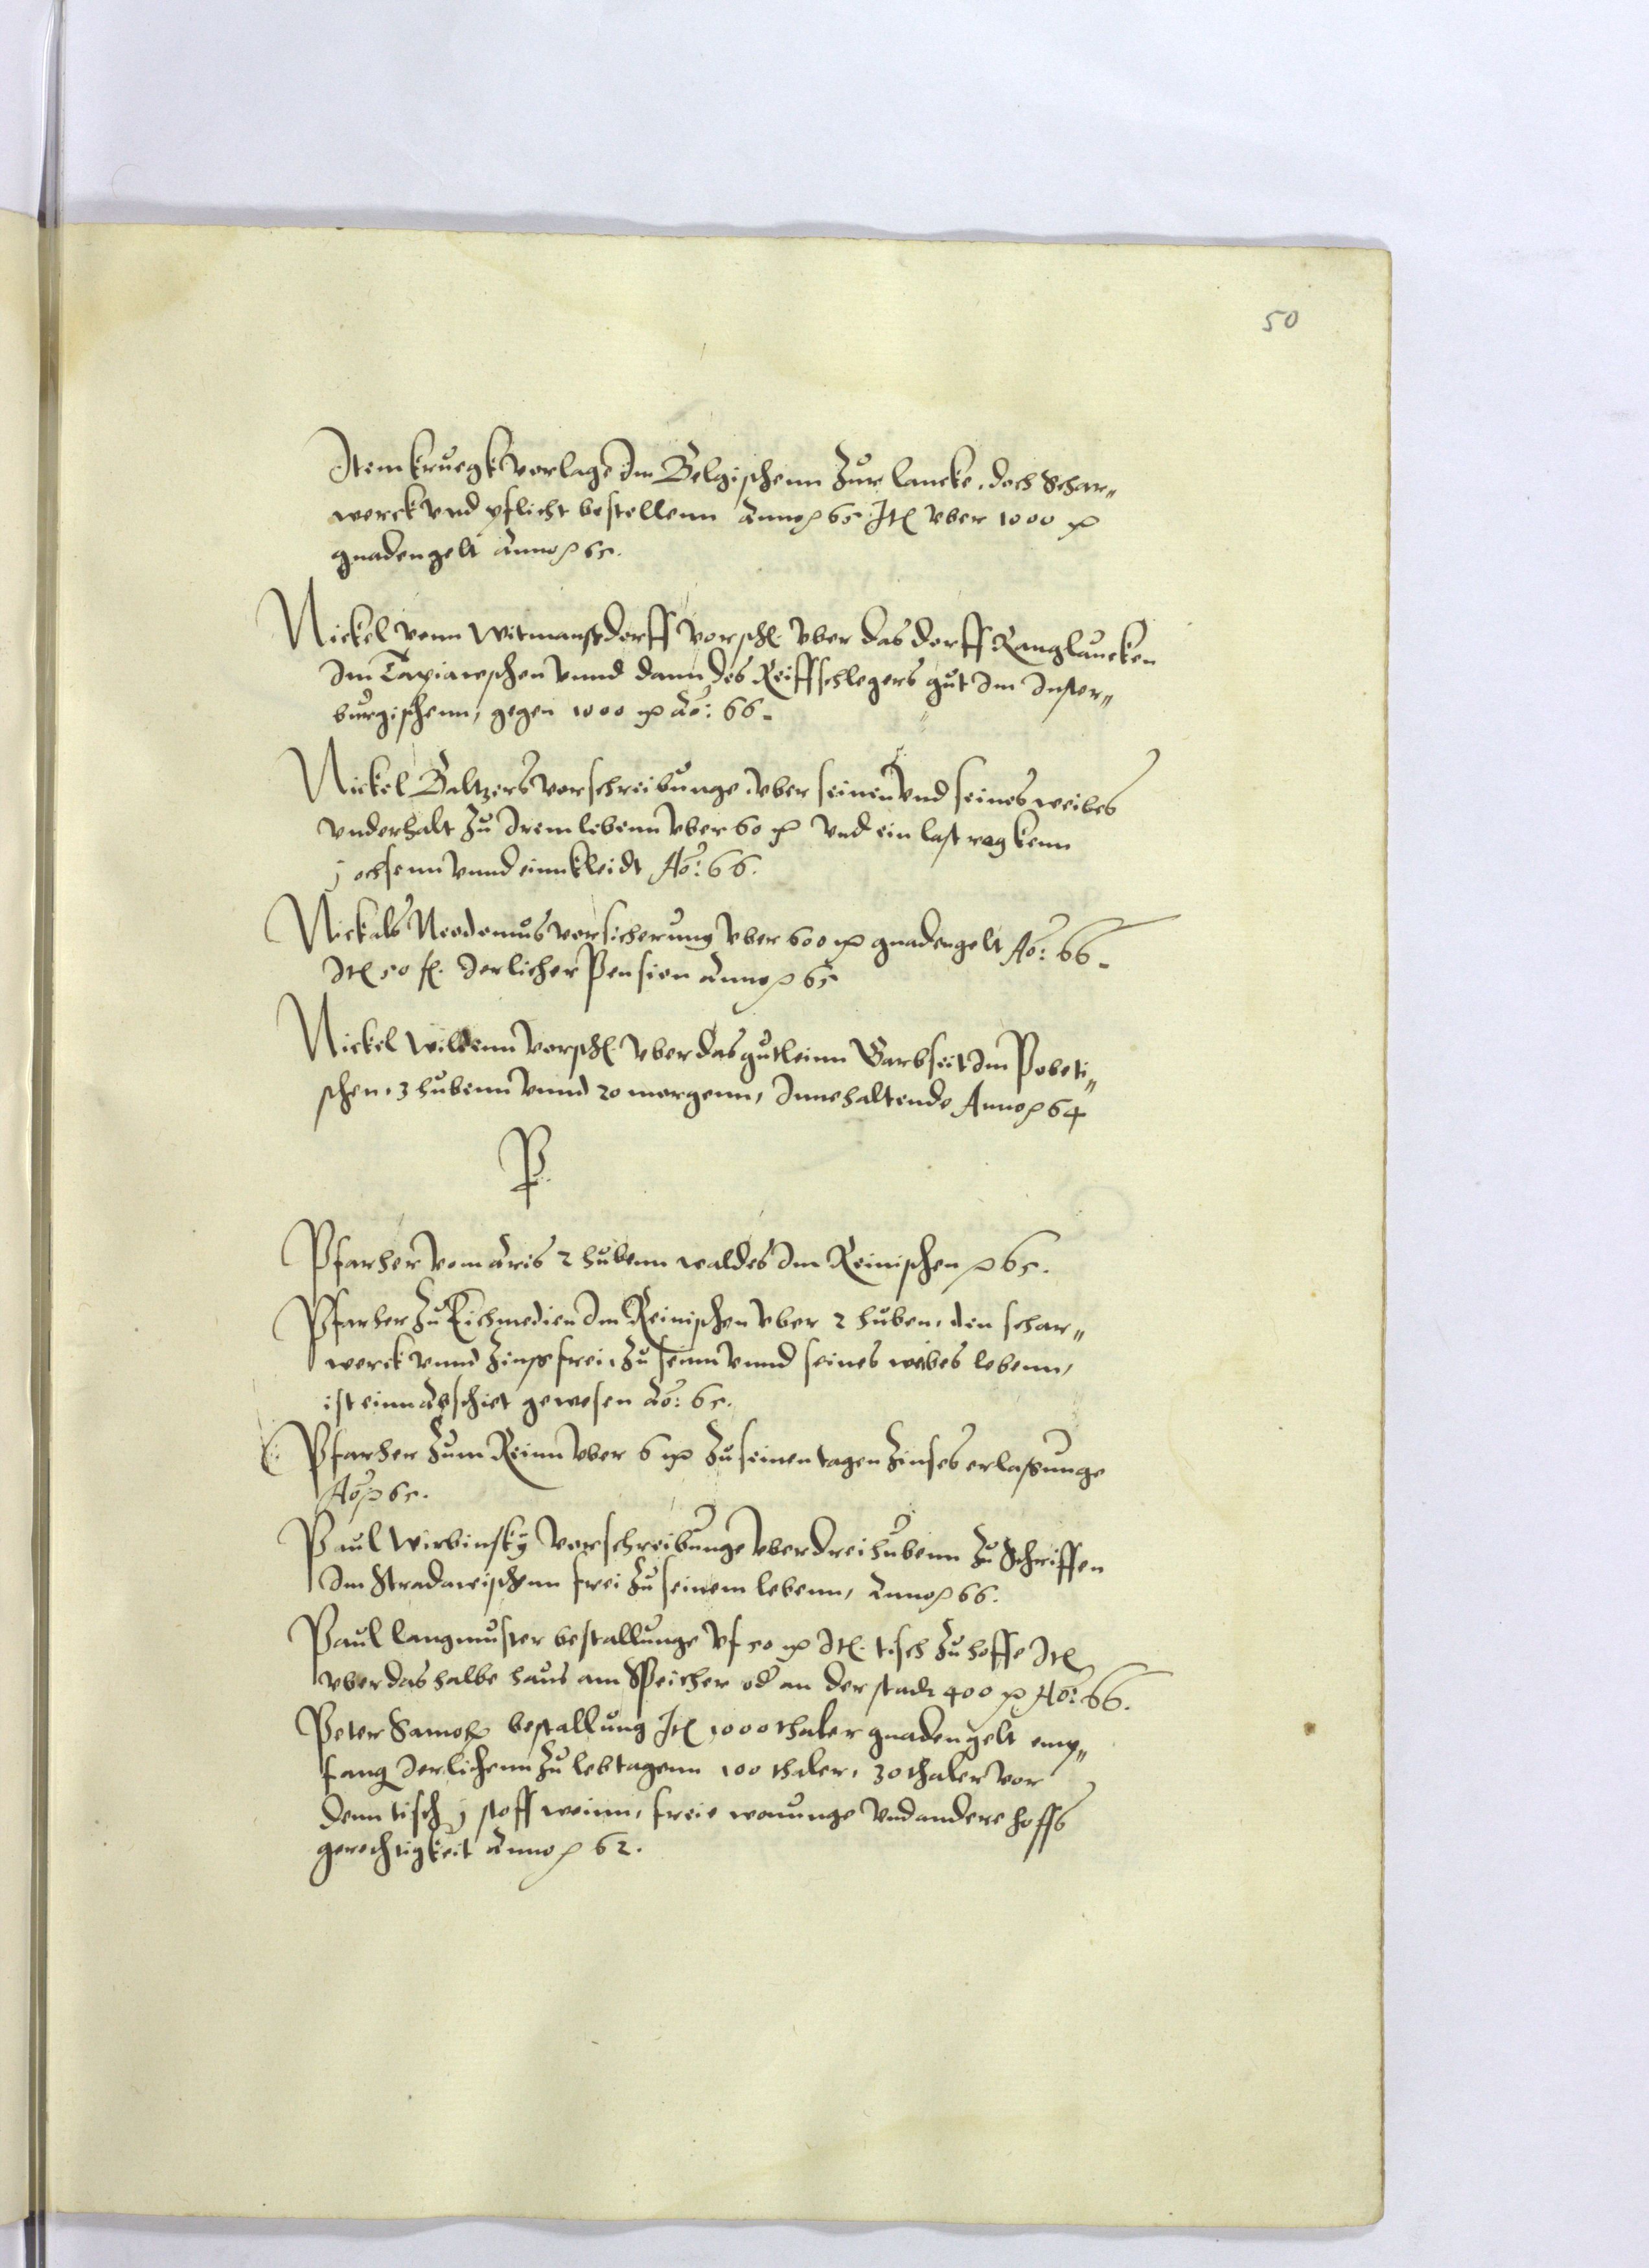 50
Item kruegk verlage Im Belgischenn zur lancke, doch Schar„
werck vnd pflicht bestellenn Anno p 65 Itl vber 1000 mr
gnadengelt Anno p 65.
Nickel venn Witmanßdorff vorschl. vber das dorff Ranglaucken
Im Tapiawschen vnnd dann des Reiffschlegers gut Im Inster„
burgischenn, gegen 1000 mr Ao: 66.
Nickel Baltzers vorschreibunge vber seinen vnd seines weibes
vnderhalt zu Irem lebenn vber 60 mr vnd ein last rogkenn
j ochsenn vnnd einn kleidt Ao: 66.
Nickels Neodomus vorsicherung vber 600 mr gnadengelt Ao: 66.
Itl 50 fl. Jerlicher Pension Anno p 65
Nickel Wildenn vorschl vber das gutleinn Barbseit Im Pobeti„
schen, 3 hubenn vnnd 20 morgenn, Innehaltende Anno p 64
P.
Pfarher vom Aris 2 hubenn waldes Im Reinischen p 65.
Pfarher zu Eichmedien Im Reinischen vber 2 huben, den schar„
werck vnnd zinßfrei, zu seinn vnnd seines weibes lebenn,
ist einn abschiet gewesen Ao: 65.
Pfarher zum Reinn vber 6 mr zu seinen tagen Zinses erlaßunge
Ao p 65.
Paul Wirbinsky vorschreibunge vber drei hubenn zu Schriffen
Im Stradawischenn frei zu seinem lebenn, Anno p 66.
Paul langmuster bestallunge vf 50 mr Itl. tisch zu hoffe Itl
vber das halbe haus am Speicher od an der stadt 400 mr Ao: 66.
Peter bestallung Itl 1000 thaler gnadengelt emp„
fang Jerlichenn zu lebtagenn 100 thaler, 30 thaler vor
denn tisch j stoff weinn, freie wonunge vnd andere hoffs
gerechtigkeit Anno p 62.